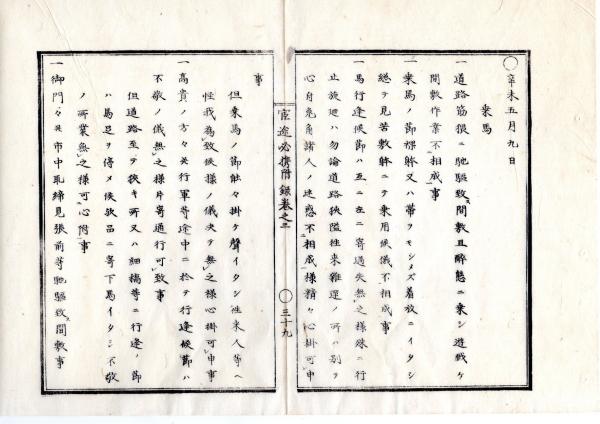 ◯辛未五月九日
乗馬
一道路筋猥ニ馳驅致ス間敷且醉態ニ乗シ遊戯ケ
間敷作業不相成事
一乗馬ノ節裸躰又ハ帯ヲモシメズ着放ニイタシ
総テ見苦敷躰ニテ乗用候儀不相成事
一馬行逢候節ハ互ニ左ニ寄過失無之様殊ニ行
止旋廻ハ勿論道路狭隘往来雑遝ノ所ハ別ヲ
心身兎角諸人ノ迷惑不相成様精々心掛可申
事
官途必携附録巻之二
◯三十九
但乗馬ノ節能々掛ケ聲イタシ往来人等ヘ
怪我為致候様ノ儀決テ無之様心掛可申事
一高貴ノ方々共行軍等途中ニ於テ行逢候節ハ
不敬ノ儀無之様片寄通行可致事
但道路至テ狭キ所又ハ細橋等ニ行逢ノ節
ハ馬足ヲ停メ候歟品ニ寄下馬イタシ不敬
ノ所業無之様可心附事
一御門々々共市中取締見張前等馳驅致ス間敷事